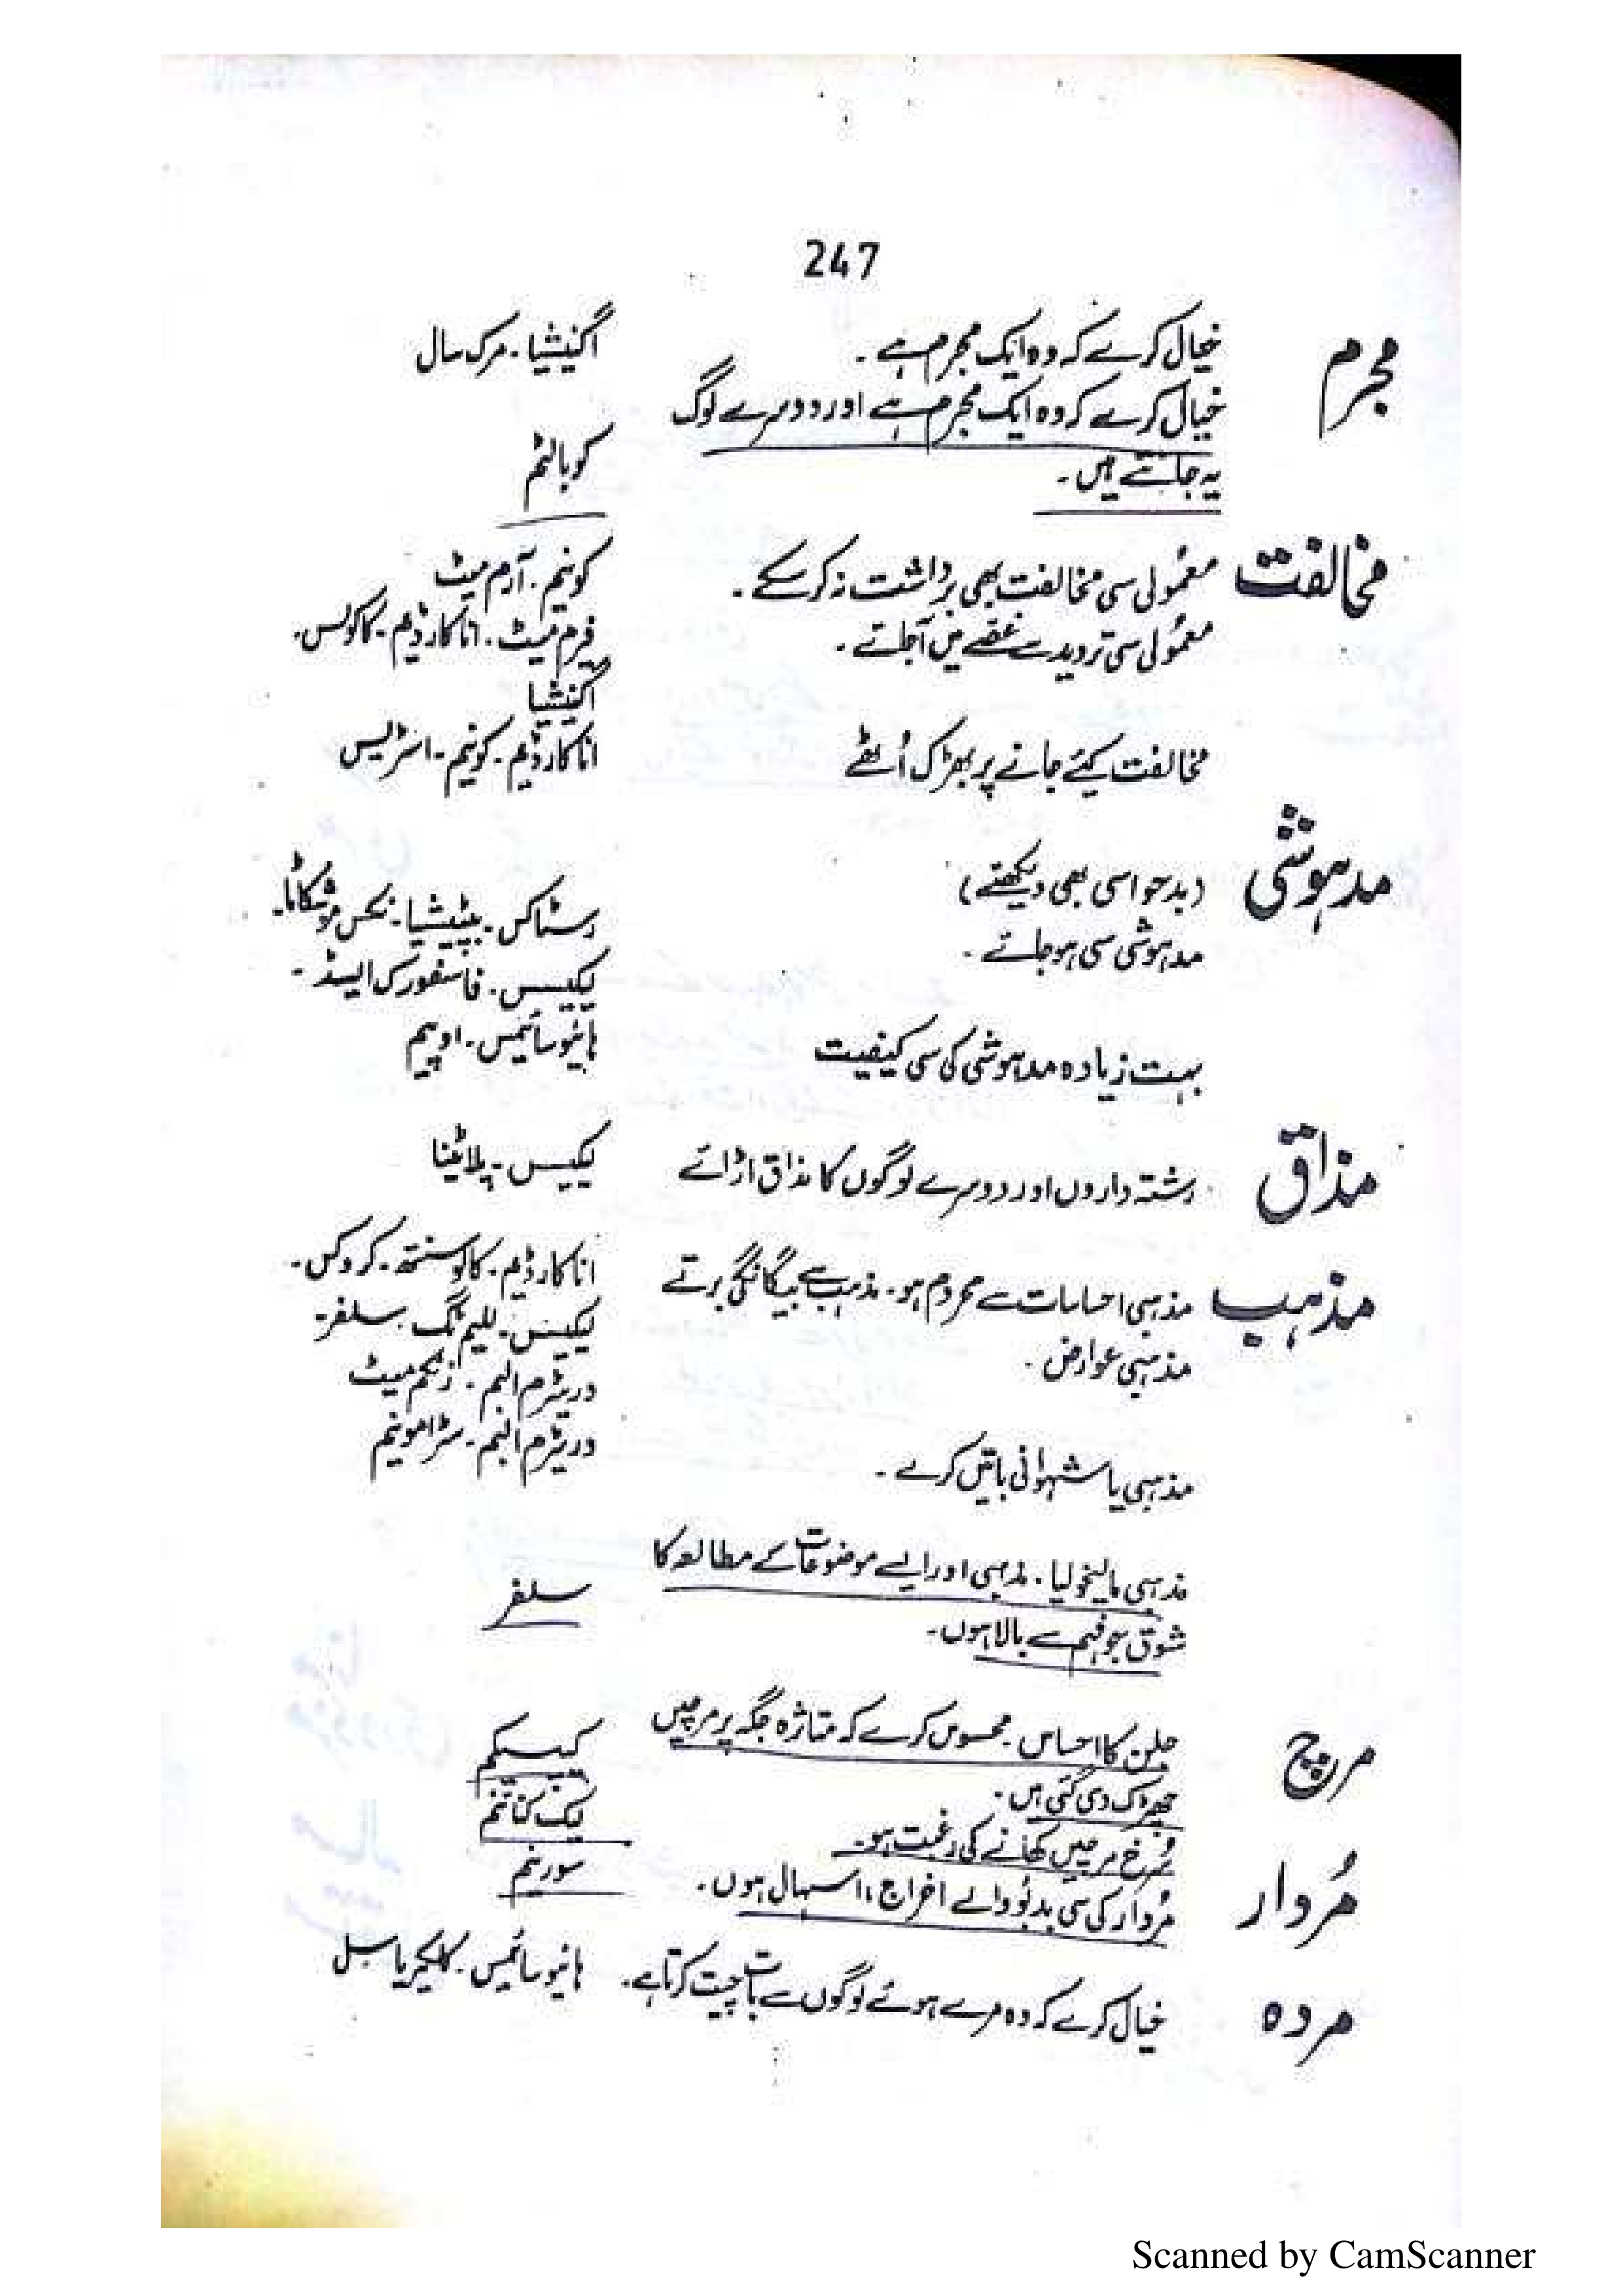 247
مجرم
خیال کرے کہ وہ ایک مجرم ہے ۔
اگنیشیا ۔ مرک سال
خیال کرے کہ وہ ایک مجرم ہے اور دوسرے لوگ
یہ جانتے ہیں ۔
کوبالٹم
مخالفت
معمُولی سی مخالفت بھی برداشت نہ کر سکے ۔
کونیم ۔ آرم میٹ
معمُولی سی تردید سے غصے میں آجائے ۔
فیرم میٹ ۔ اناکارڈیم ۔ کاکولس ۔
اگنیشیا
مخالفت کیئے جانے پر بھڑک اُٹھے
اناکارڈیم ۔ کونیم ۔ اسٹرلیس
مدہوشی
(بدحواسی بھی دیکھئے)
مدہوشی سی ہو جائے ۔
رسٹاکس ۔ بپٹیشیا ۔ نکس موشکاٹا ۔
لیکیسس ۔ فاسفورک ایسڈ ۔
بہت زیادہ مدہوشی کی سی کیفیت
ہائیوسائیمس ۔ اوپیم
مذاق
رشتہ داروں اور دوسرے لوگوں کا مذاق اڑائے
لیکیسس ۔ پلاٹینا
مذہب
مذہبی احساسات سے محروم ہو ۔ مذہب سے بیگانگی برتے
اناکارڈیم ۔ کالوسنتھ ۔ کروکس ۔
مذہبی عوارض ۔
لیکیسس ۔ للیم ٹگ ۔ سلفر ۔
وریٹرم البم ۔ زنکم میٹ
مذہبی یا شہوانی باتیں کرے ۔
وریٹرم البم ۔ سٹرامونیم
مذہبی مالیخولیا ۔ مذہبی اور ایسے موضوعات کے مطالعہ کا
شوق جو فہم سے بالا ہوں ۔
سلفر
مرچ
جلن کا احساس ۔ محسوس کرے کہ متاثرہ جگہ پر مرچیں
چھڑک دی گئی ہیں ۔
کیپسیکم
سُرخ مرچیں کھانے کی رغبت ہو ۔
لیک کنائنم
مُردار
مُردار کی سی بدبُو والے اخراج ، اسہال ہوں ۔
سورینم
مردہ
خیال کرے کہ وہ مرے ہوئے لوگوں سے بات چیت کرتا ہے ۔
ہائیوسائیمس ۔ کلکیریا سل
Scanned by CamScanner